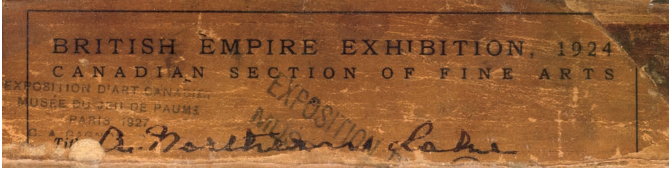 BRITISH EMPIRE EXHIBITION, 1924
CANADIAN SECTION OF FINE ARTS
EXPOSITION D'ART CANADIEN
MUSÉE DU JEU DE PAUME
PARIS 1927
EXPOSITION
MUS
Title A Northern Lake